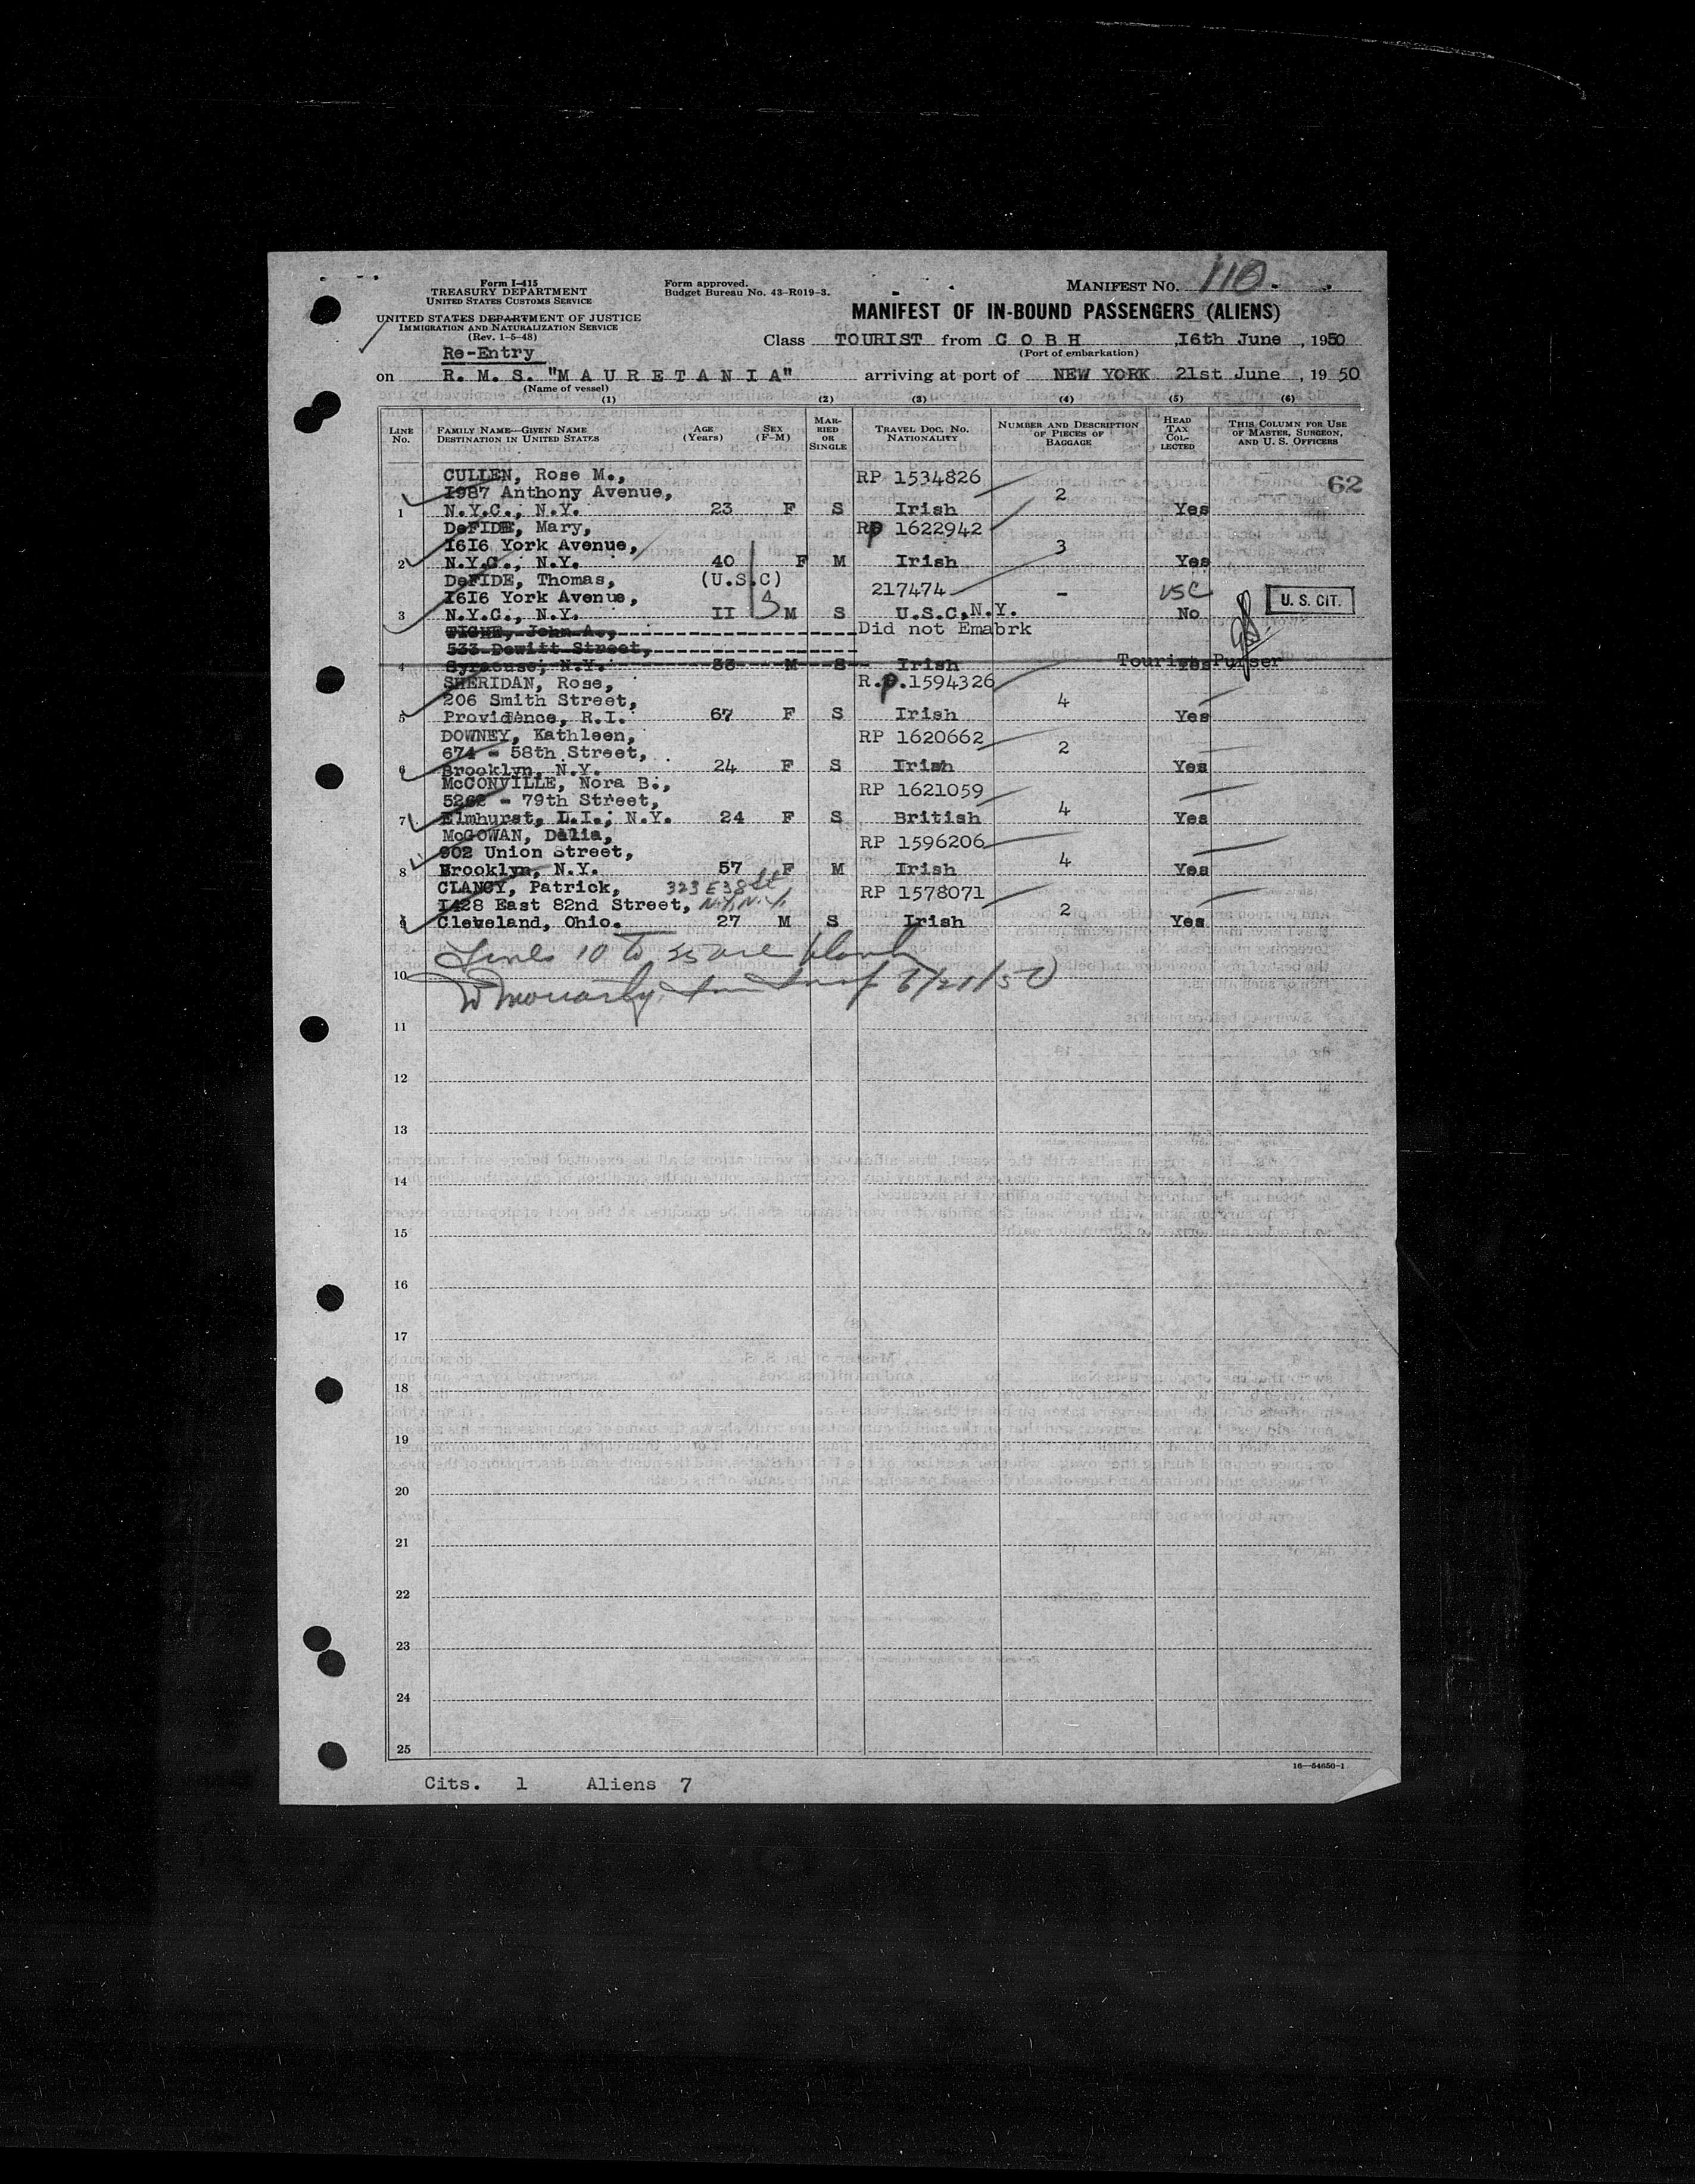 Form I-415
TREASURY DEPARTMENT
UNITED STATES CUSTOMS SERVICE
UNITED STATES DEPARTMENT OF JUSTICE
IMMIGRATION AND NATURALIZATION SERVICE
(Rev. 1-5-48)
Form approved.
Budget Bureau No. 43-R019-3.
MANIFEST NO. 110
MANIFEST OF IN-BOUND PASSENGERS (ALIENS)
Re-Entry
Class TOURIST from C O B H ,16th June , 1950
(Port of embarkation)
on R. M. S. "M A U R E T A N I A" arriving at port of NEW YORK 21st June , 19 50
(Name of vessel)
(1) (2) (3) (4) (5) (6)
LINE No. FAMILY NAME—GIVEN NAME DESTINATION IN UNITED STATES AGE (Years) SEX (F-M) MARRIED OR SINGLE TRAVEL DOC. NO. NATIONALITY NUMBER AND DESCRIPTION OF PIECES OF BAGGAGE HEAD TAX COLLECTED THIS COLUMN FOR USE OF MASTER, SURGEON, AND U. S. OFFICERS
CULLEN, Rose M., RP 1534826
1987 Anthony Avenue, 2 62
1 N.Y.C., N.Y. 23 F S Irish Yes
DeFIDE, Mary, RP 1622942
I6I6 York Avenue, 3
2 N.Y.C., N.Y. 40 F M Irish Yes
DeFIDE, Thomas, (U.S.C) 217474
I6I6 York Avenue, - USC U. S. CIT.
3 N.Y.C., N.Y. II M S U.S.C,N.Y. No
TIGHE, John A., Did not Emabrk
533 Dewitt Street,
4 Syracuse, N.Y. M S Irish Yes Tourist Purser
SHERIDAN, Rose, R.P.1594326
206 Smith Street, 4
5 Providence, R.I. 67 F S Irish Yes
DOWNEY, Kathleen, RP 1620662
674 - 58th Street, 2
6 Brooklyn, N.Y. 24 F S Irish Yes
McCONVILLE, Nora B., RP 1621059
5262 - 79th Street, 4
7 Elmhurst, L.I., N.Y. 24 F S British Yes
McGOWAN, Delia, RP 1596206
902 Union Street, 4
8 Brooklyn, N.Y. 57 F M Irish Yes
CLANCY, Patrick, 323 E 38 St, RP 1578071
1428 East 82nd Street, N.Y, N.Y. 2
9 Cleveland, Ohio. 27 M S Irish Yes
Lines 10 to 25 are blank
10 6/21/50
11
12
13
14
15
16
17
18
19
20
21
22
23
24
25
16—54650-1
Cits. 1 Aliens 7